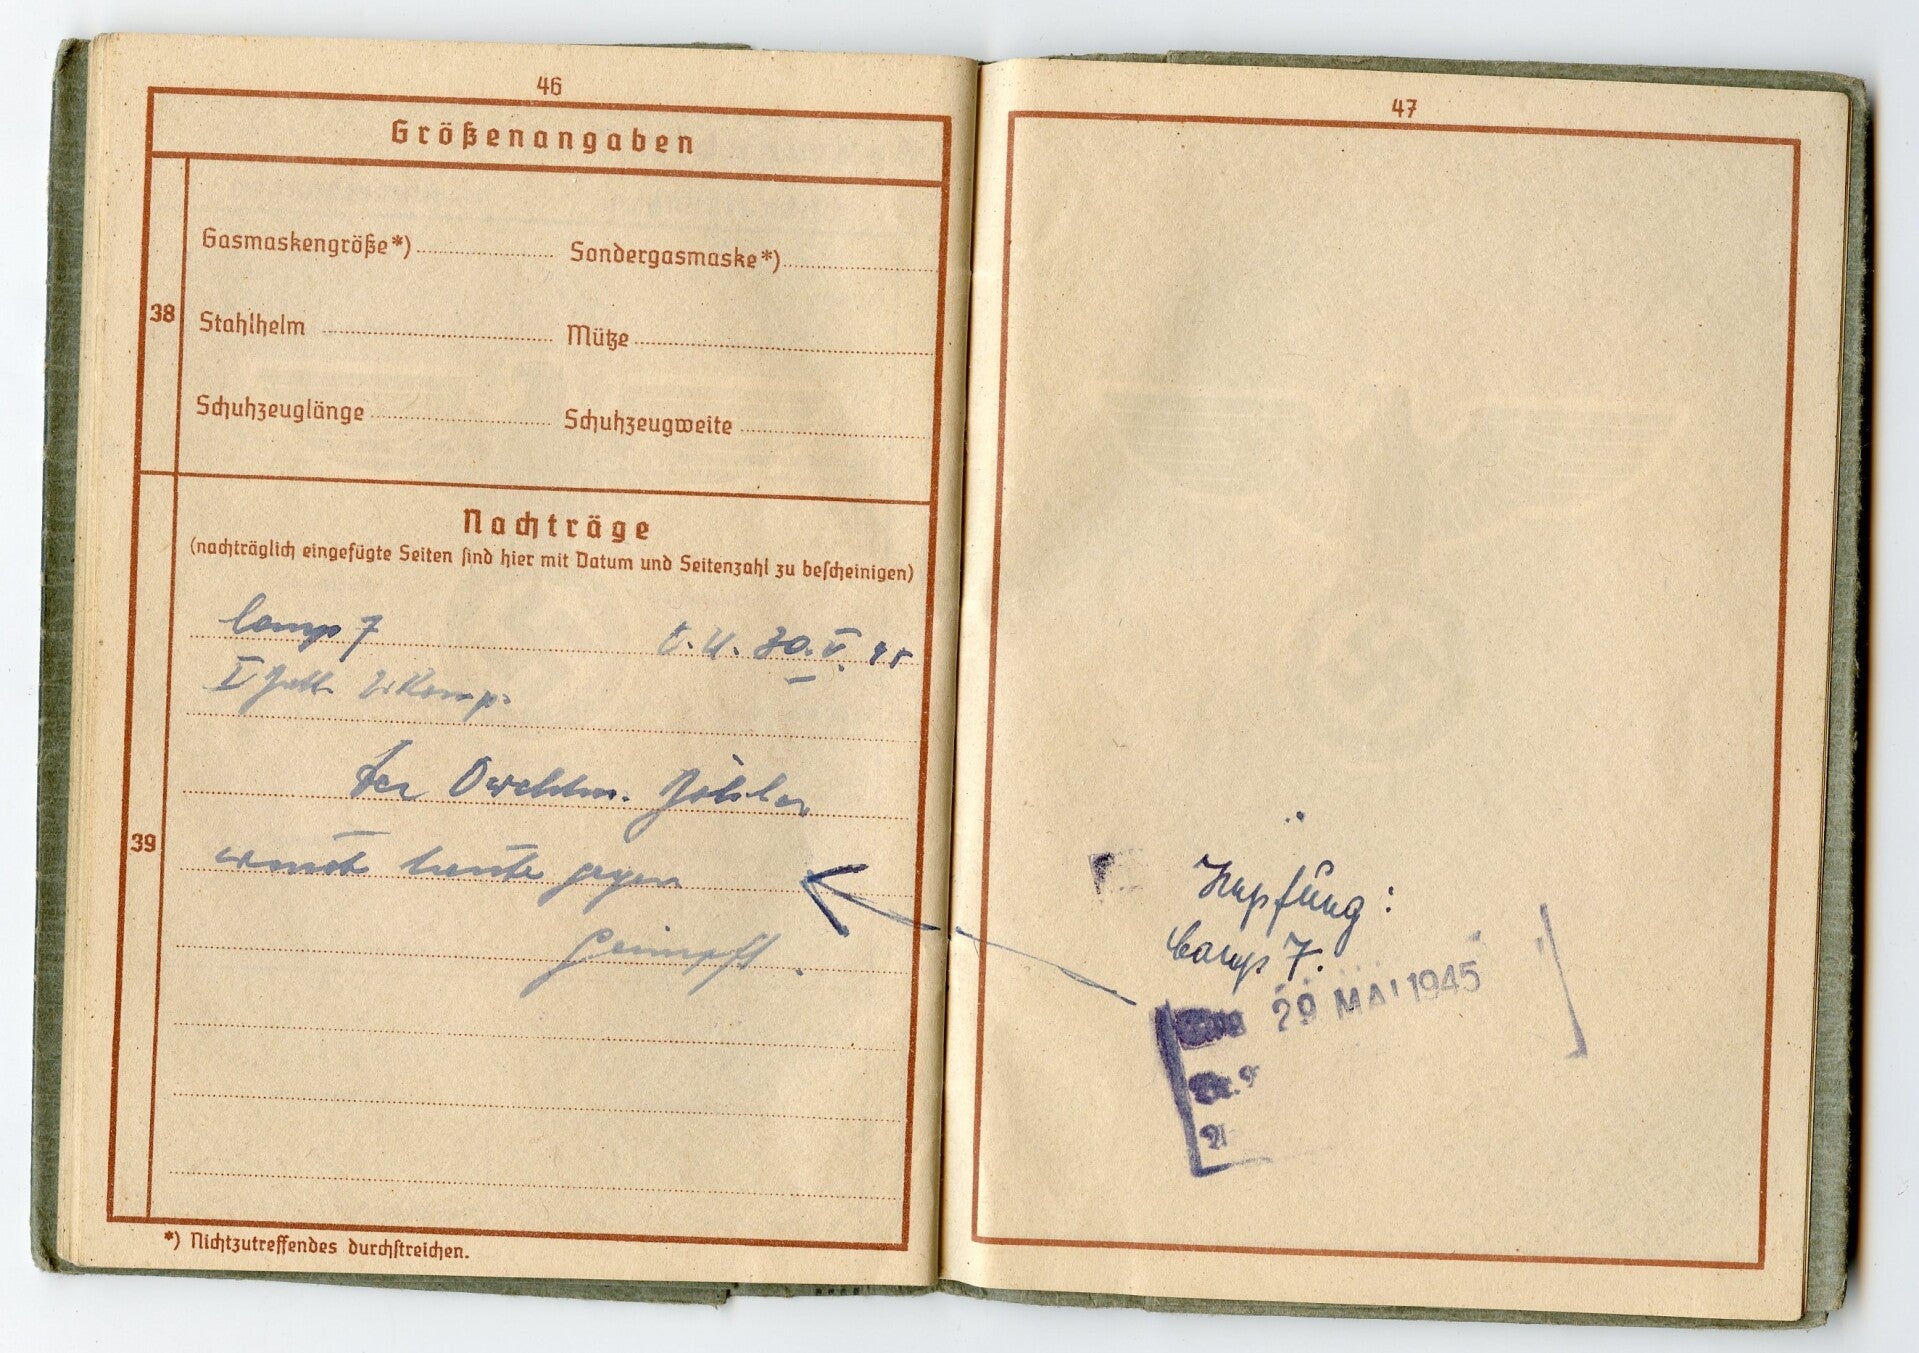 46
Größenangaben
38
Gasmaskengröße*) Sondergasmaske*)
Stahlhelm Mütze
Schuhzeuglänge Schuhzeugweite
39
Nachträge
(nachträglich eingefügte Seiten sind hier mit Datum und Seitenzahl zu bescheinigen)
Camp 7 O.U. 30.V. 45
Komp.
Der
heute gegen
geimpft.
*) Nichtzutreffendes durchstreichen.
47
Impfung:
Camp 7.
29 MAI 1945